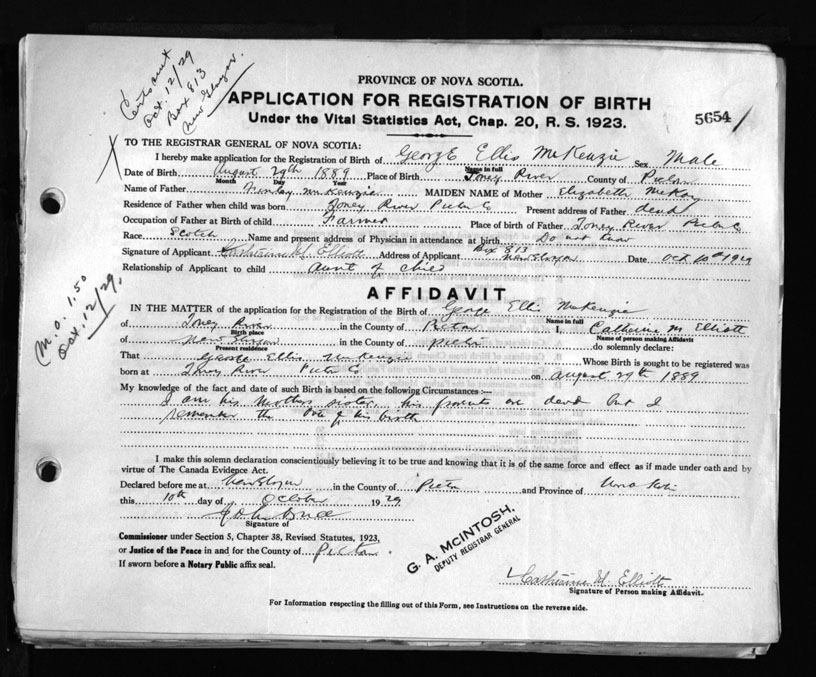 Oct. 12/29
Box 813
New Glasgow.
PROVINCE OF NOVA SCOTIA.
APPLICATION FOR REGISTRATION OF BIRTH
Under the Vital Statistics Act, Chap. 20, R. S. 1923.
5654
TO THE REGISTRAR GENERAL OF NOVA SCOTIA:
I hereby make application for the Registration of Birth of George Ellis McKenzie Sex Male
Name in full
Date of Birth August 29th 1889 Place of Birth Toney River County of Pictou
Month Day Year
Name of Father Finlay McKenzie MAIDEN NAME of Mother Elizabeth McKay
Residence of Father when child was born Toney River Pictou Co Present address of Father dead
Occupation of Father at Birth of child Farmer Place of birth of Father Toney River Pictou Co
Race Scotch Name and present address of Physician in attendance at birth Do not know
Signature of Applicant Catherine M. Elliott Address of Applicant Box 813 New Glasgow Date Oct 10th 1929
Relationship of Applicant to child aunt of child
M.O. 1.50
Oct. 12/29.
AFFIDAVIT
IN THE MATTER of the application for the Registration of the Birth of George Ellis McKenzie
Name in full
of Toney River in the County of Pictou I, Catherine M Elliott
Birth place Name of person making Affidavit
of New Glasgow in the County of Pictou do solemnly declare:
Present residence
That George Ellis McKenzie Whose Birth is sought to be registered was
born at Toney River Pictou Co on August 29th 1889
My knowledge of the fact and date of such Birth is based on the following Circumstances :—
I am his Mothers sister, his parents are dead but I
remember the date of his birth
I make this solemn declaration conscientiously believing it to be true and knowing that it is of the same force and effect as if made under oath and by
virtue of The Canada Evidence Act.
Declared before me at New Glasgow in the County of Pictou and Province of Nova Scotia
this 10th day of October 1929
John
Signature of
Commissioner under Section 5, Chapter 38, Revised Statutes, 1923,
or Justice of the Peace in and for the County of Pictou.
If sworn before a Notary Public affix seal.
G. A. MCINTOSH,
DEPUTY REGISTRAR GENERAL
Catherine M. Elliott
Signature of Person making Affidavit.
For Information respecting the filling out of this Form, see Instructions on the reverse side.